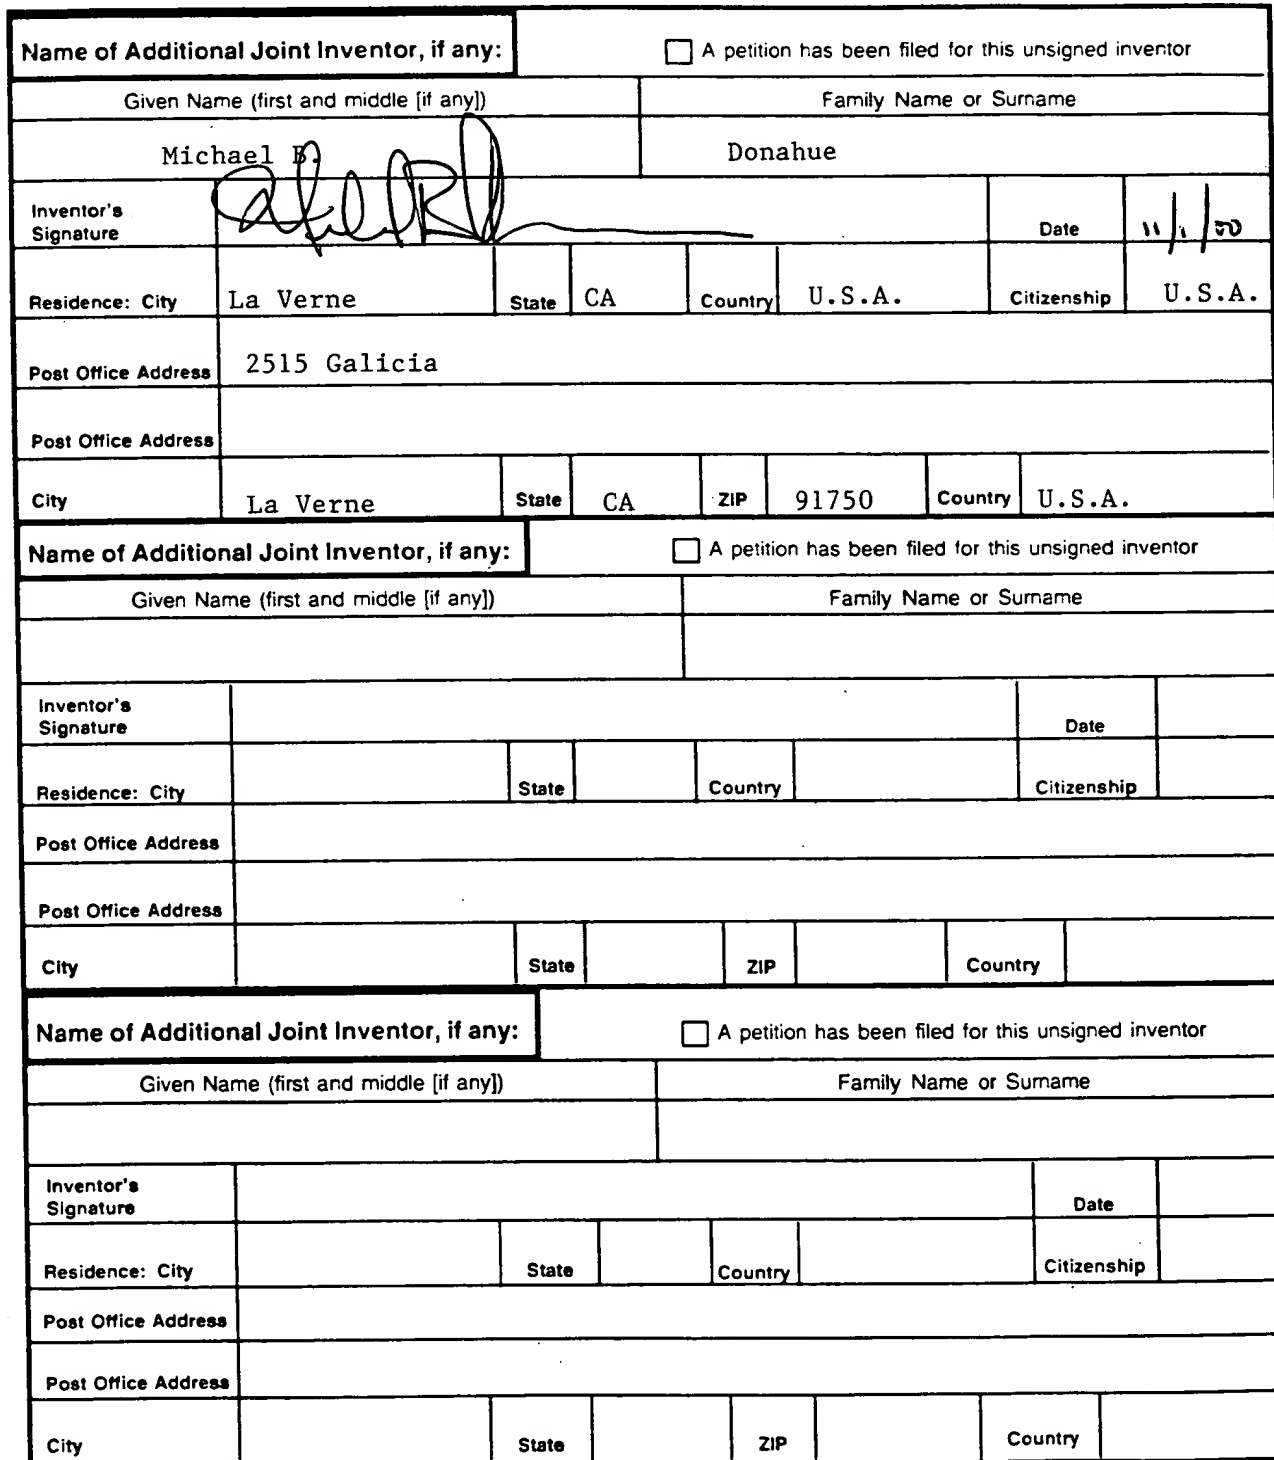 Name of Additional Joint Inventor, if any: A petition has been filed for this unsigned inventor
Given Name (first and middle [if any]) Family Name or Surname
Michael B. Donahue
Inventor's
Signature Date 11/1/00
Residence: City La Verne State CA Country U.S.A. Citizenship U.S.A.
Post Office Address 2515 Galicia
Post Office Address
City La Verne State CA ZIP 91750 Country U.S.A.
Name of Additional Joint Inventor, if any: A petition has been filed for this unsigned inventor
Given Name (first and middle [if any]) Family Name or Surname
Inventor's
Signature Date
Residence: City State Country Citizenship
Post Office Address
Post Office Address
City State ZIP Country
Name of Additional Joint Inventor, if any: A petition has been filed for this unsigned inventor
Given Name (first and middle [if any]) Family Name or Surname
Inventor's
Signature Date
Residence: City State Country Citizenship
Post Office Address
Post Office Address
City State ZIP Country